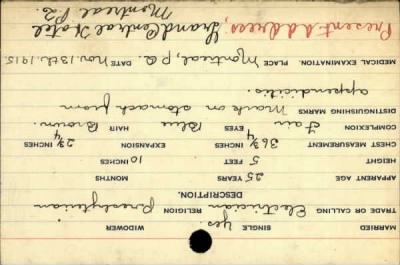 MARRIED SINGLE Yes. WIDOWER
TRADE OR CALLING Electrician RELIGION Presbyterian
DESCRIPTION.
APPARENT AGE 25 YEARS MONTHS
HEIGHT 5 FEET 10 INCHES
CHEST MEASUREMENT 36 3/4 INCHES EXPANSION 2 3/4 INCHES
COMPLEXION Fair EYES Blue HAIR Brown.
DISTINGUISHING MARKS Mark on stomach from
appendicitis.
MEDICAL EXAMINATION. PLACE Montreal, P.Q. DATE Nov. 13th. 1915
Present Address, Grand Central Hotel
Montreal P.Q.